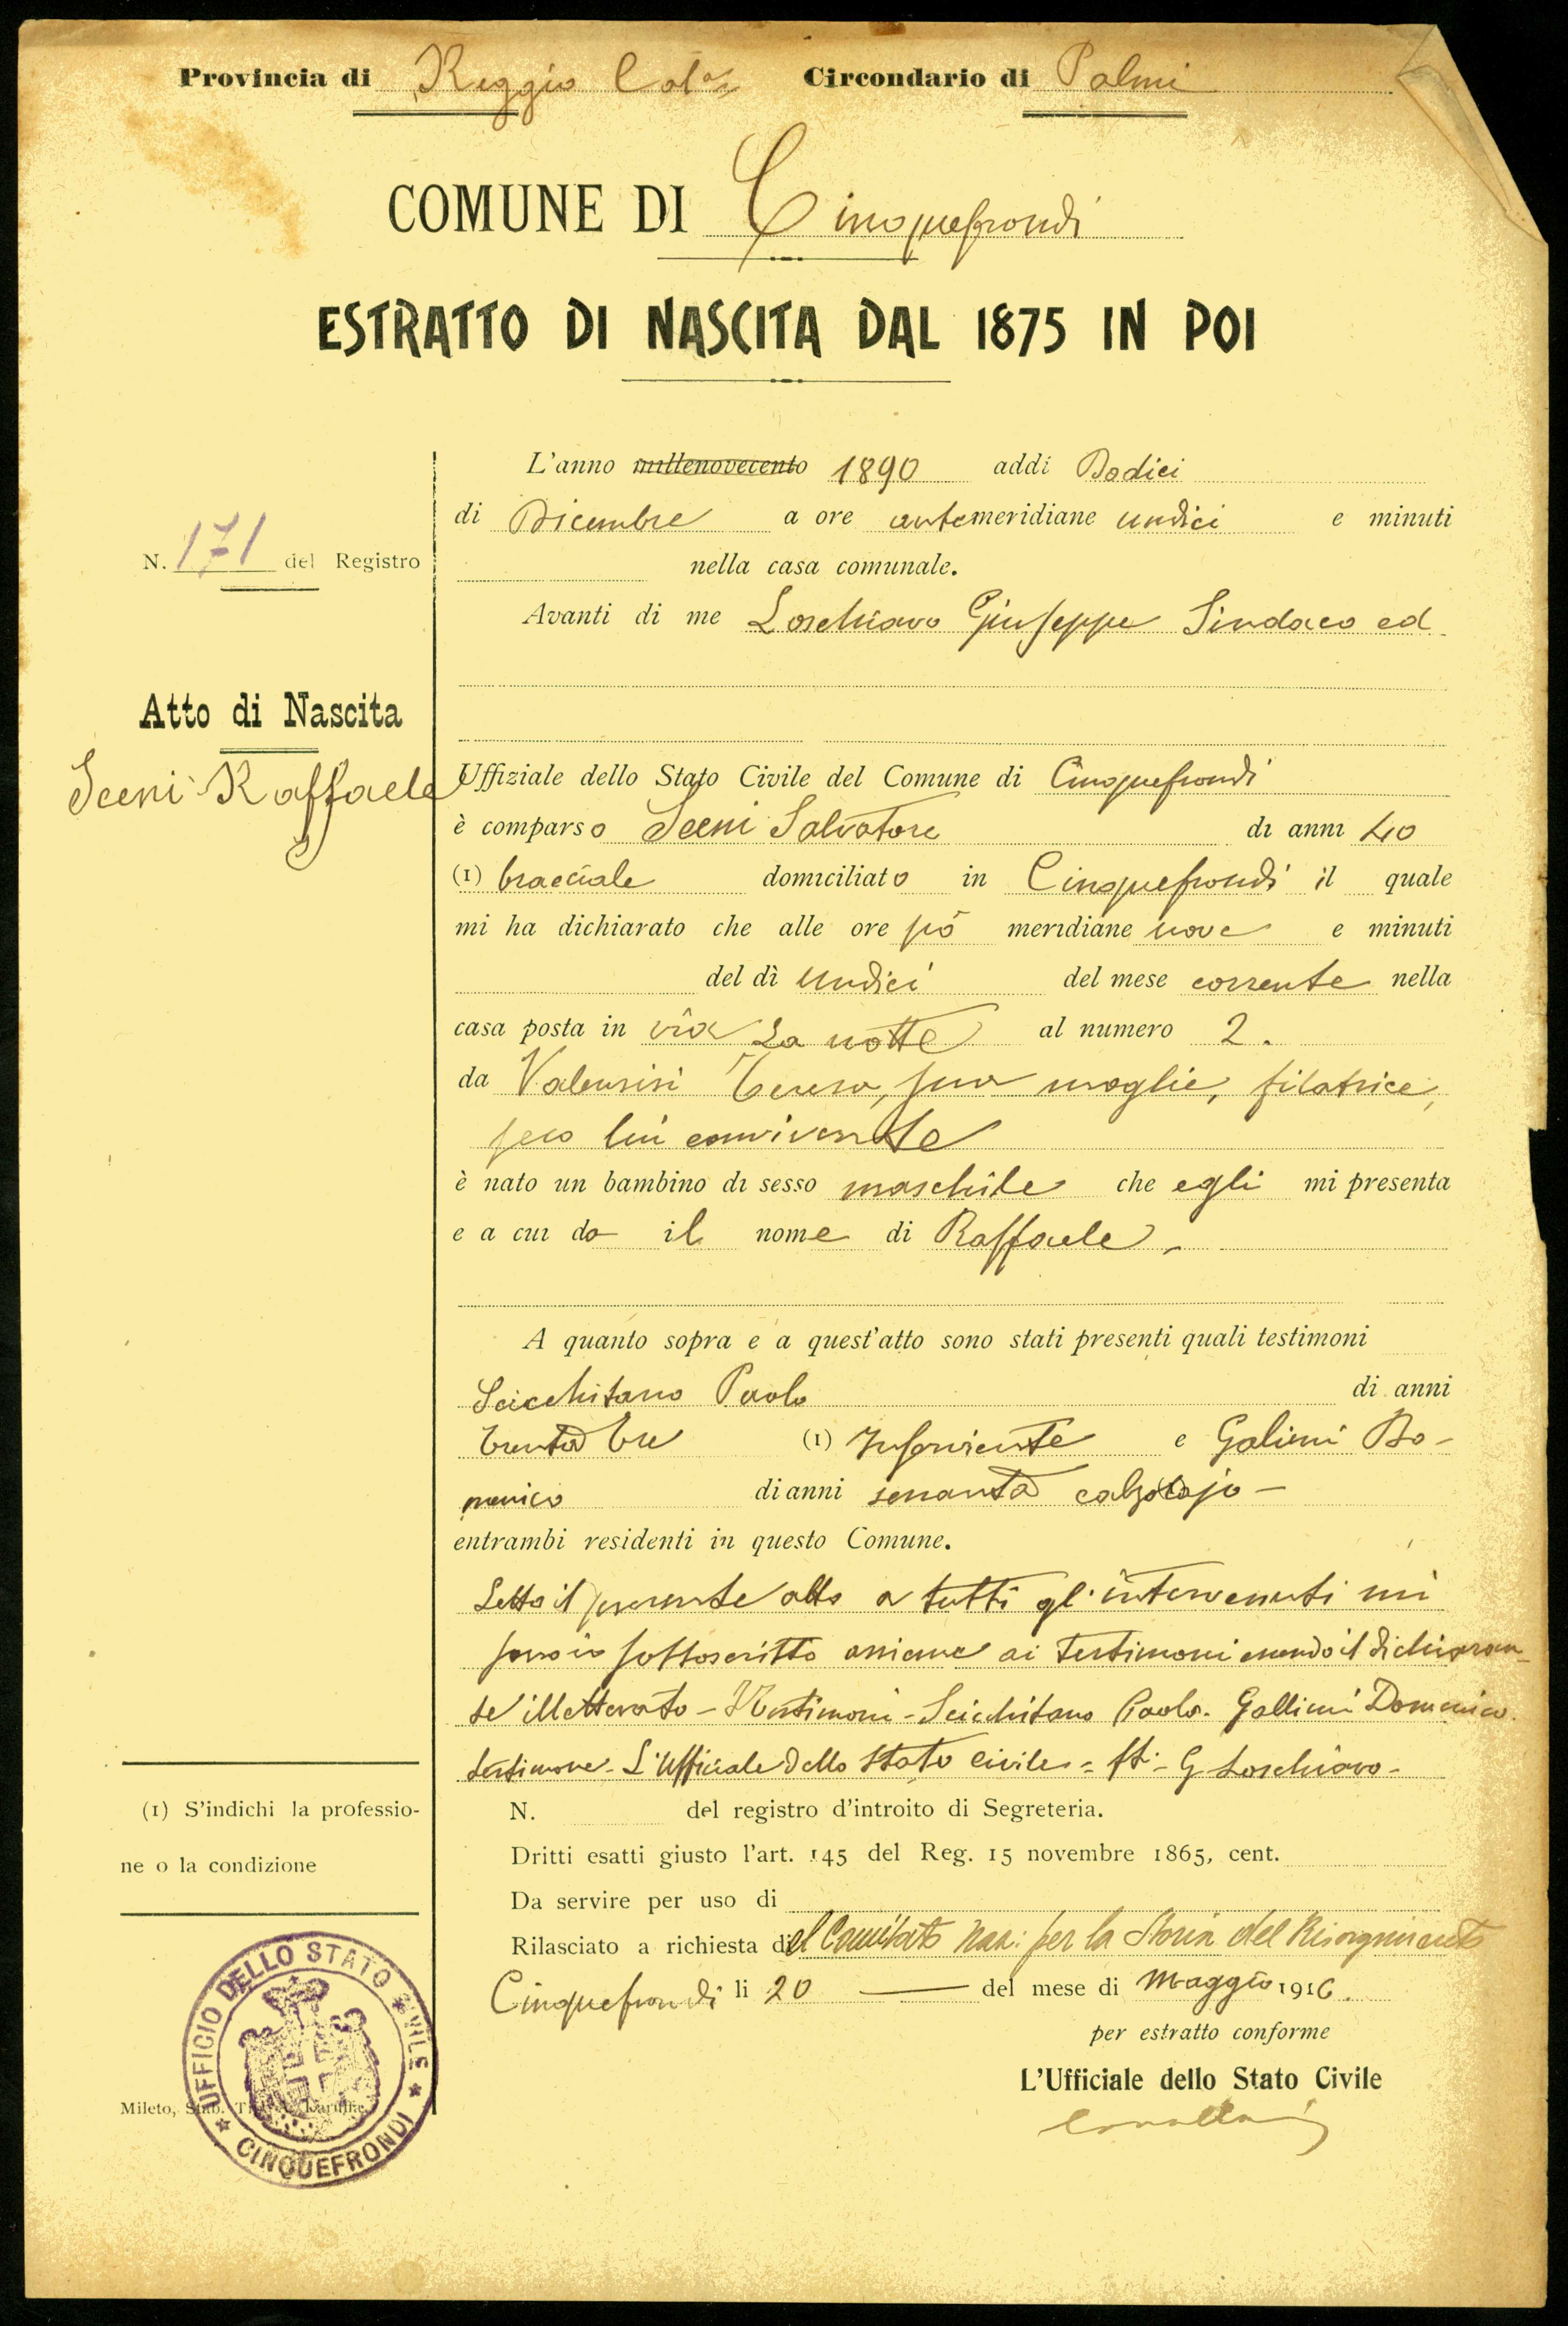 Provincia di Reggio Cal. Circondario di Palmi
COMUNE DI Cinquefrondi
ESTRATTO DI NASCITA DAL 1875 IN POI
N. 171 del Registro
Atto di Nascita
Sceni Raffaele
L'anno millenovecento 1890 addì Dodici
di Dicembre a ore antemeridiane undici e minuti
nella casa comunale.
Avanti di me Loschiavo Giuseppe Sindaco ed
Uffiziale dello Stato Civile del Comune di Cinquefrondi
è comparso Sceni Salvatore di anni 40
(1) bracciale domiciliato in Cinquefrondi il quale
mi ha dichiarato che alle ore po meridiane nove e minuti
del dì undici del mese corrente nella
casa posta in via La notte al numero 2.
da Valensisi Teresa, sua moglie, filatrice,
seco lui convivente
è nato un bambino di sesso maschile che egli mi presenta
e a cui da il nome di Raffaele.
A quanto sopra e a quest'atto sono stati presenti quali testimoni
Scicchitano Paolo di anni
trenta tre (1) Inserviente e Galimi Do-
menico di anni sessanta calzolajo -
entrambi residenti in questo Comune.
Letto il presente atto a tutti gl'intervenuti mi
sono io sottoscritto assieme ai testimoni essendo il dichiaran-
te illetterato - I testimoni - Scicchitano Paolo. Gallimi Domenico
testimone - L'Ufficiale dello Stato Civile = ft - G. Loschiavo -
N. del registro d'introito di Segreteria.
Dritti esatti giusto l'art. 145 del Reg. 15 novembre 1865, cent.
Da servire per uso di
Rilasciato a richiesta del Comitato Naz: per la Storia del Risorgimento
Cinquefrondi li 20 — del mese di Maggio 1916.
per estratto conforme
L'Ufficiale dello Stato Civile
(1) S'indichi la professio-
ne o la condizione
UFFICIO DELLO STATO CIVILE
CINQUEFRONDI
Mileto, Stab. Tip.